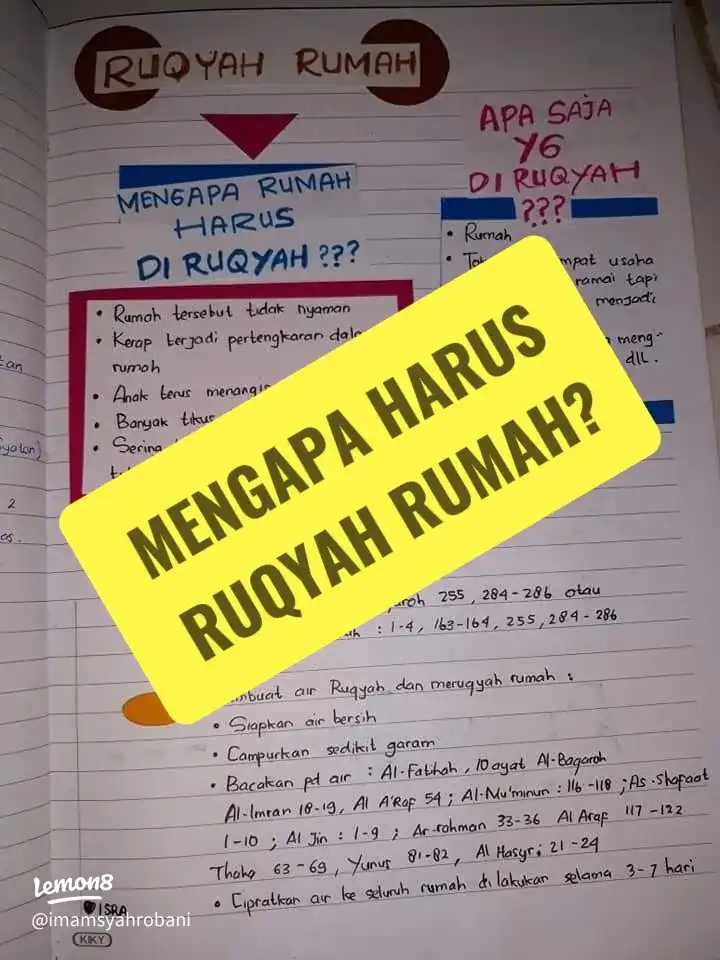 RUQYAH RUMAH
MENGAPA RUMAH
HARUS
DI RUQYAH ???
• Rumah tersebut tidak nyaman
• Kerap terjadi pertengkaran
rumah
• Anak terus
• Banyak tikus
• Sering
APA SAJA
YG
DI RUQYAH
???
• Rumah
usaha
ramai tapi
menjadi
meng-
dll.
tan
2
MENGAPA HARUS
RUQYAH RUMAH?
255, 284-286 atau
: 1-4, 163-164, 255, 284-286
air Ruqyah dan meruqyah rumah :
• Siapkan air bersih
• Campurkan sedikit garam
• Bacakan pd air : Al-Fatihah, 10 ayat Al-Baqaroh
Al-Imran 18-19, Al A'Rof 54 ; Al-Mu'minun : 116-118 ; As-Shafaat
1-10 ; Al Jin : 1-9 ; Ar-rohman 33-36 Al Araf 117-122
Thoha 63-69, Yunus 81-82, Al Hasyr : 21-24
• Cipratkan air ke seluruh rumah di lakukan selama 3-7 hari
lemon8
ISRA
@imamsyahrobani
KIKY